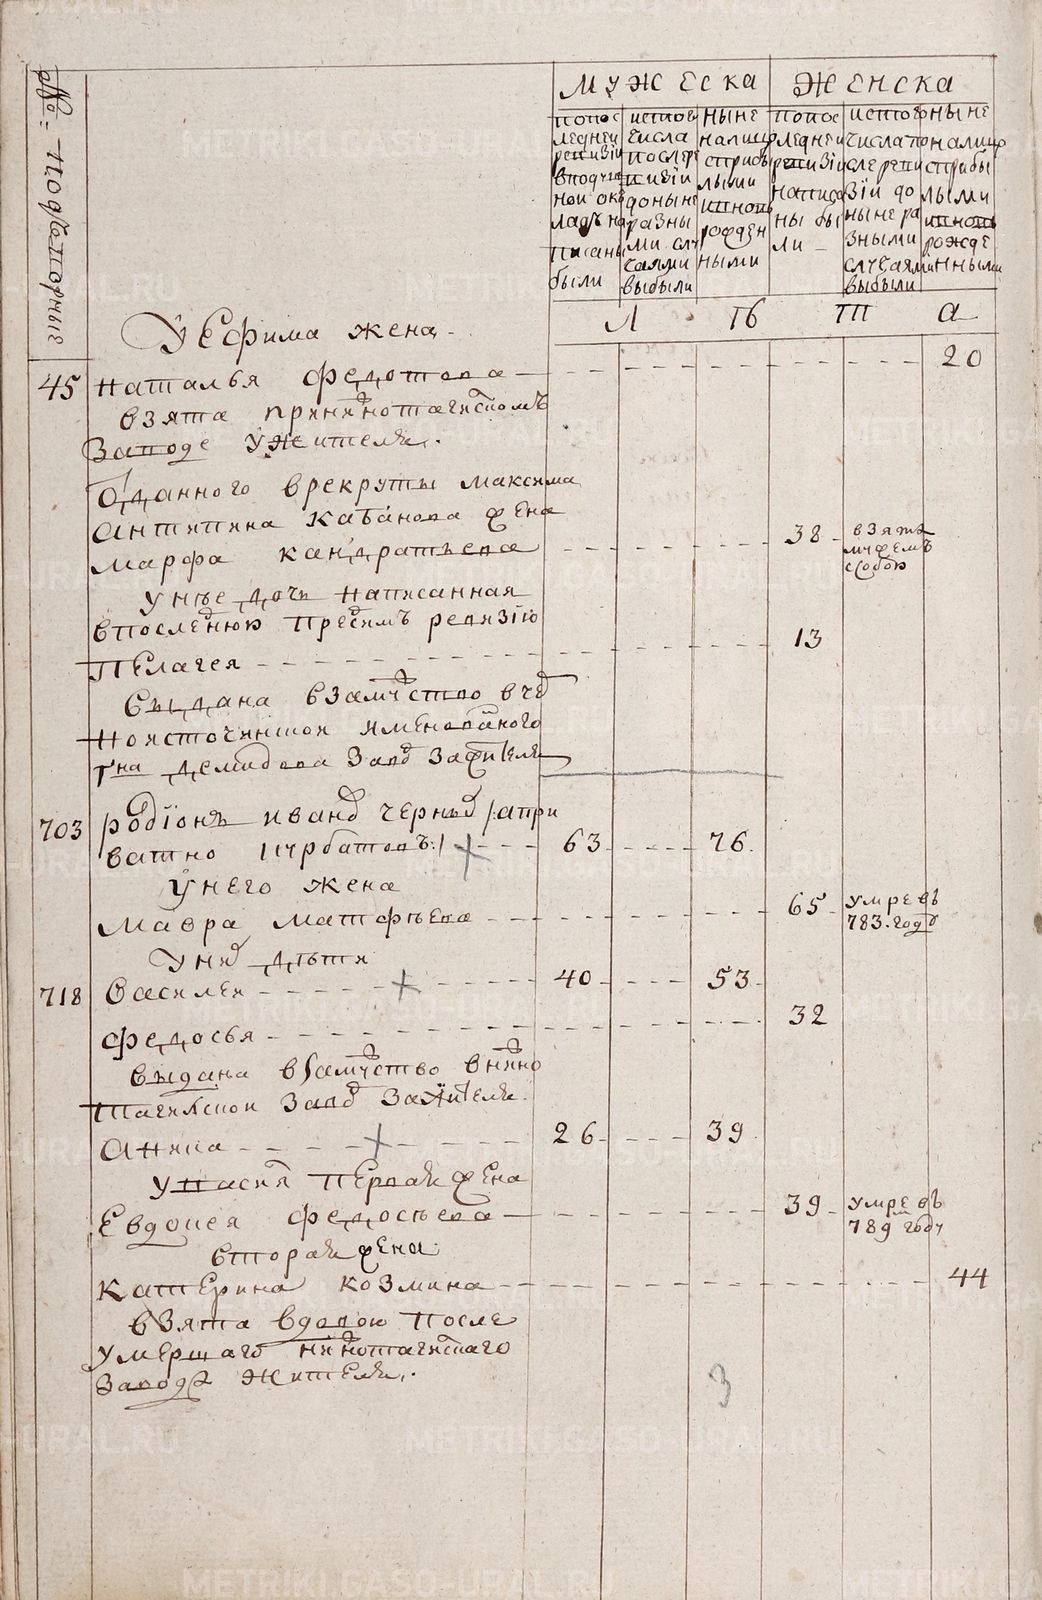 МУЖЕСКА ЖЕНСКА
попос
ледней
ревизии
вподуш
ной окъ
ладъ на
писаны
были
истого
числа
послере
визии
доныне
разны
ми слу
чаями
выбыли
ныне
налицо
сприбы
лыми
ивновь
рожден
ными
попос
ледней
ревизии
написа
ны бы
ли
истого
числапо
слереви
зіи до
ныне ра
зными
случаями
выбыли
ныне
налицо
сприбы
лыми
ивновь
рожде
нными
Л Тб тп а
У Ефима жена
20
45 наталья федотова
взята принижнотагилскомъ
Заводе ужителя.
Отданного врекруты максима
Антипина Кабанова жена
марфа кандратьева 38 взята
мужемъ
ссобою
у нее дочи написанная
впоследнюю пресимъ ревизію
пелагея 13
выдана взамужство вчер
ноисточинской именованного
гна демидова завод зажителя
703 родіонъ иванов черных /:апри
ватно Курбатовъ:/ 63 76
У него жена
мавра матфеева 65 умре въ
783. году
У них дети
718 Василей 40 53
федосья 32
выдана взамужство внижно
тагилской завод зажителя
Аника 26 39
у Насия первая жена
Евдокея федосеева 39 умре въ
789 году
вторая жена
Катерина козмина 44
взята вдовою после
умершаго нижнотагилскаго
Завода жителя.
3